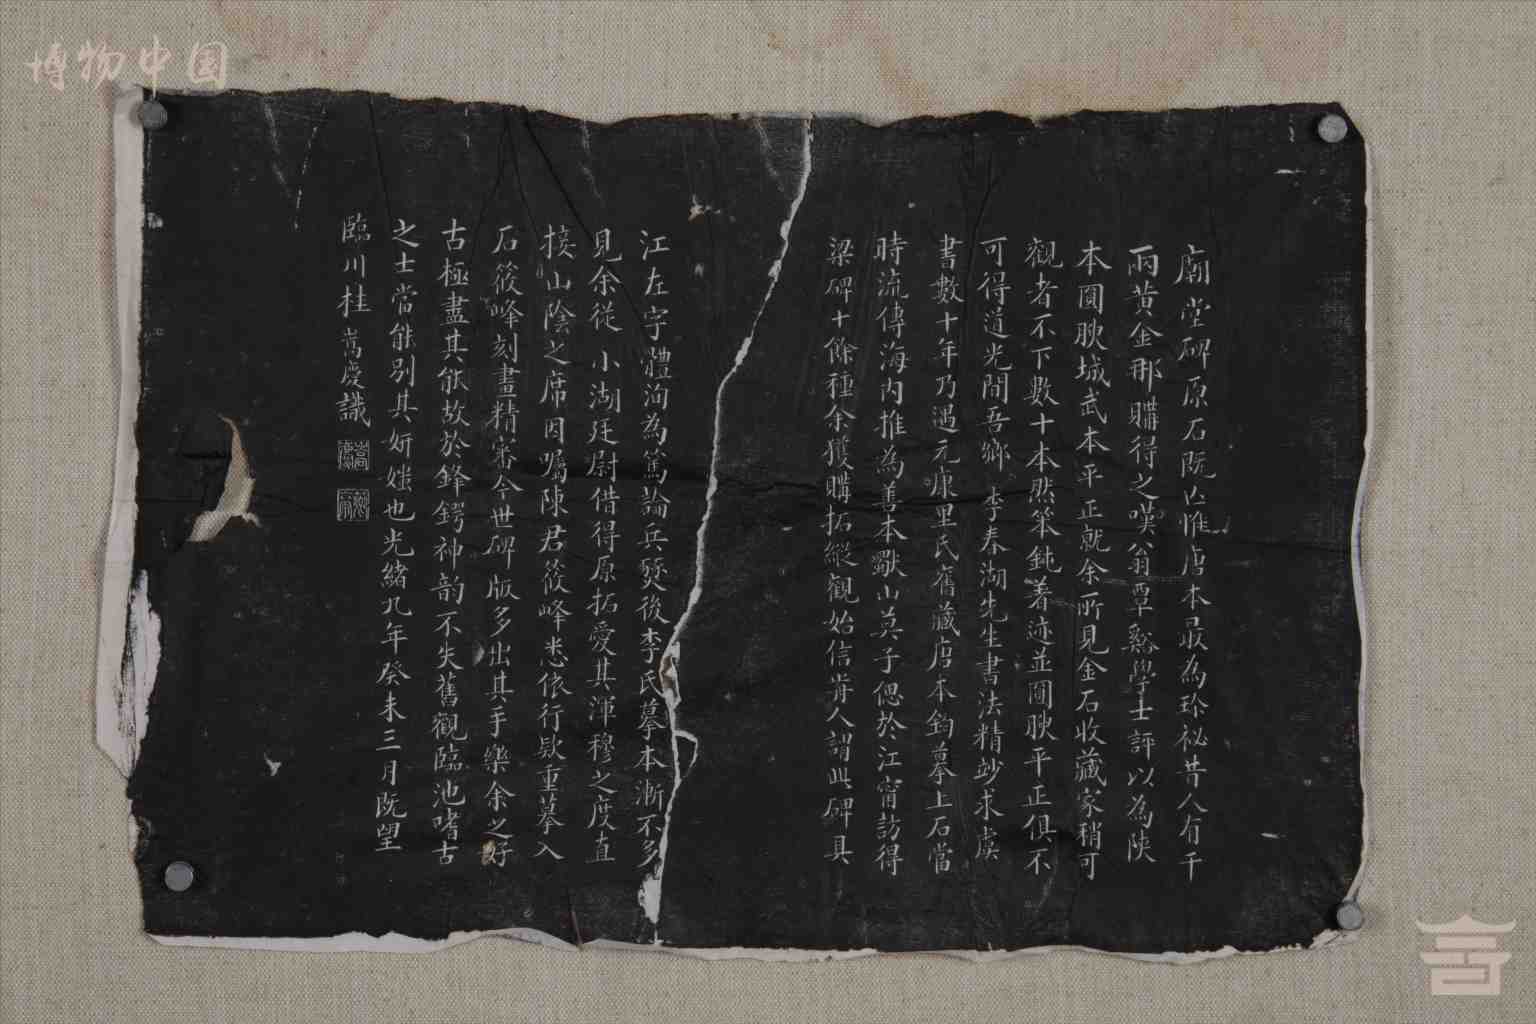 博物中国
廟堂碑原石既亡惟唐本最為珍祕昔人有千
兩黄金那購得之嘆翁覃谿學士評以為陝
本圓腴城武本平正就余所見金石收藏家稍可
觀者不下數十本然笨鈍着迹並圓腴平正俱不
可得道光間吾鄉李春湖先生書法精玅求虞
書數十年乃遇元康里氏舊藏唐本鈎摹上石當
時流傳海内推為善本歜山莫子偲於江甯訪得
梁碑十餘種余獲購拓縱觀始信肯人謂此碑具
江左字體洵為篤論兵燹後李氏摹本漸不多
見余從小湖廷尉借得原拓愛其渾穆之度直
接山陰之席因囑陳君筱峰悉依行欵重摹入
石筱峰刻畫精審今世碑版多出其手樂余之好
古極盡其能故於鋒鍔神韵不失舊觀臨池嗜古
之士當能别其妍媸也光緒九年癸未三月既望
臨川桂嵩慶識